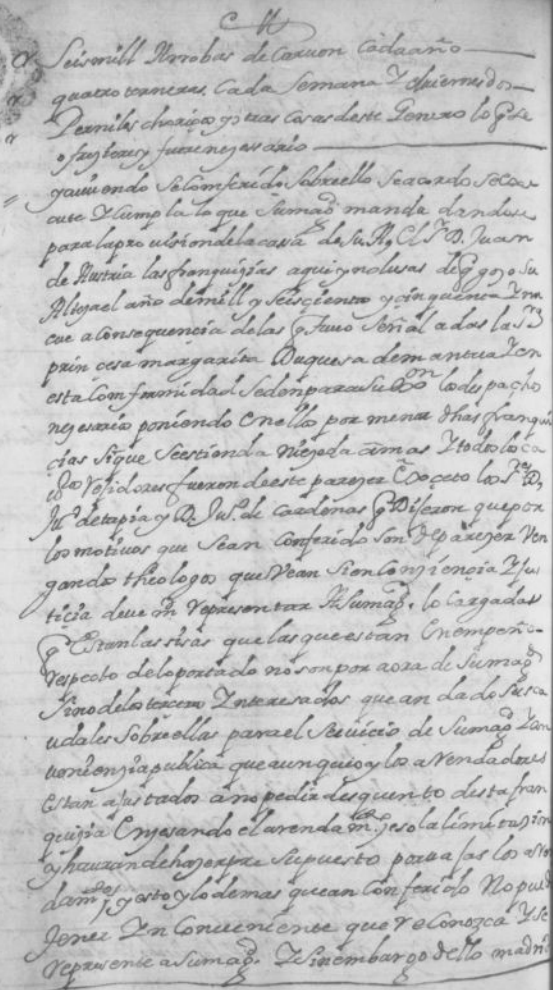 Seis mill Arrobas de Carvon cada año
quatro terneras Cada Semana Y de hiernes dos
Perniles choriços y otras cosas deste Genero lo q se
ofreziere y fuere nezessario
y aviendo se Conferido Sobre ello se acordo se exe
cute Y Cumpla lo que Su mag.d manda dandose
para la provision de la cassa de Su A. el S.r D. Juan
de Austria las franquizias aqui ynclusas de q gozo Su
Alteza el año de mill y Seiscientos y cinquenta Y
que a Consequencia de las q tuvo Señaladas la S.ra
prinçesa margarita Duquesa de mantua Y en
esta Comformidad se den para su los despachos
nezesarios poniendo en ellos por menor dhas franqui
çias sin que se estienda ni ezeda a mas Y todos los ca
vos Rejidores fueron de este parezer Exçeto los S.res D.
Ju.o de tapia y D. Ju.o de Cardenas q Dijeron que por
los motivos que se an Conferido son de parezer Ven
gan dos theologos que Vean si en Conziençia Y jus
ticia deve m.d representar A Su mag.d lo Cargadas
q Estan las sisas que las que estan En empeño
respecto de lo portado no son por aora de Su mag.d
Sino de los terceros Ynteresados que an dado sus ca
udales Sobre ellas para el Servicio de Su mag.d Y con
venienzia publica que aunque oy los arrendadores
estan ajustados a no pedir desquento desta fran
quizia Enzesando el arendam.to zeso la limitazion
y hauran de hazer pre supuesto para las los arren
dam.tos y esto y lo demas que an Conferido No puede
tener Yn Conveniente que se Conozca Y se
represente a Su mag.d Y sin embargo dello madrid